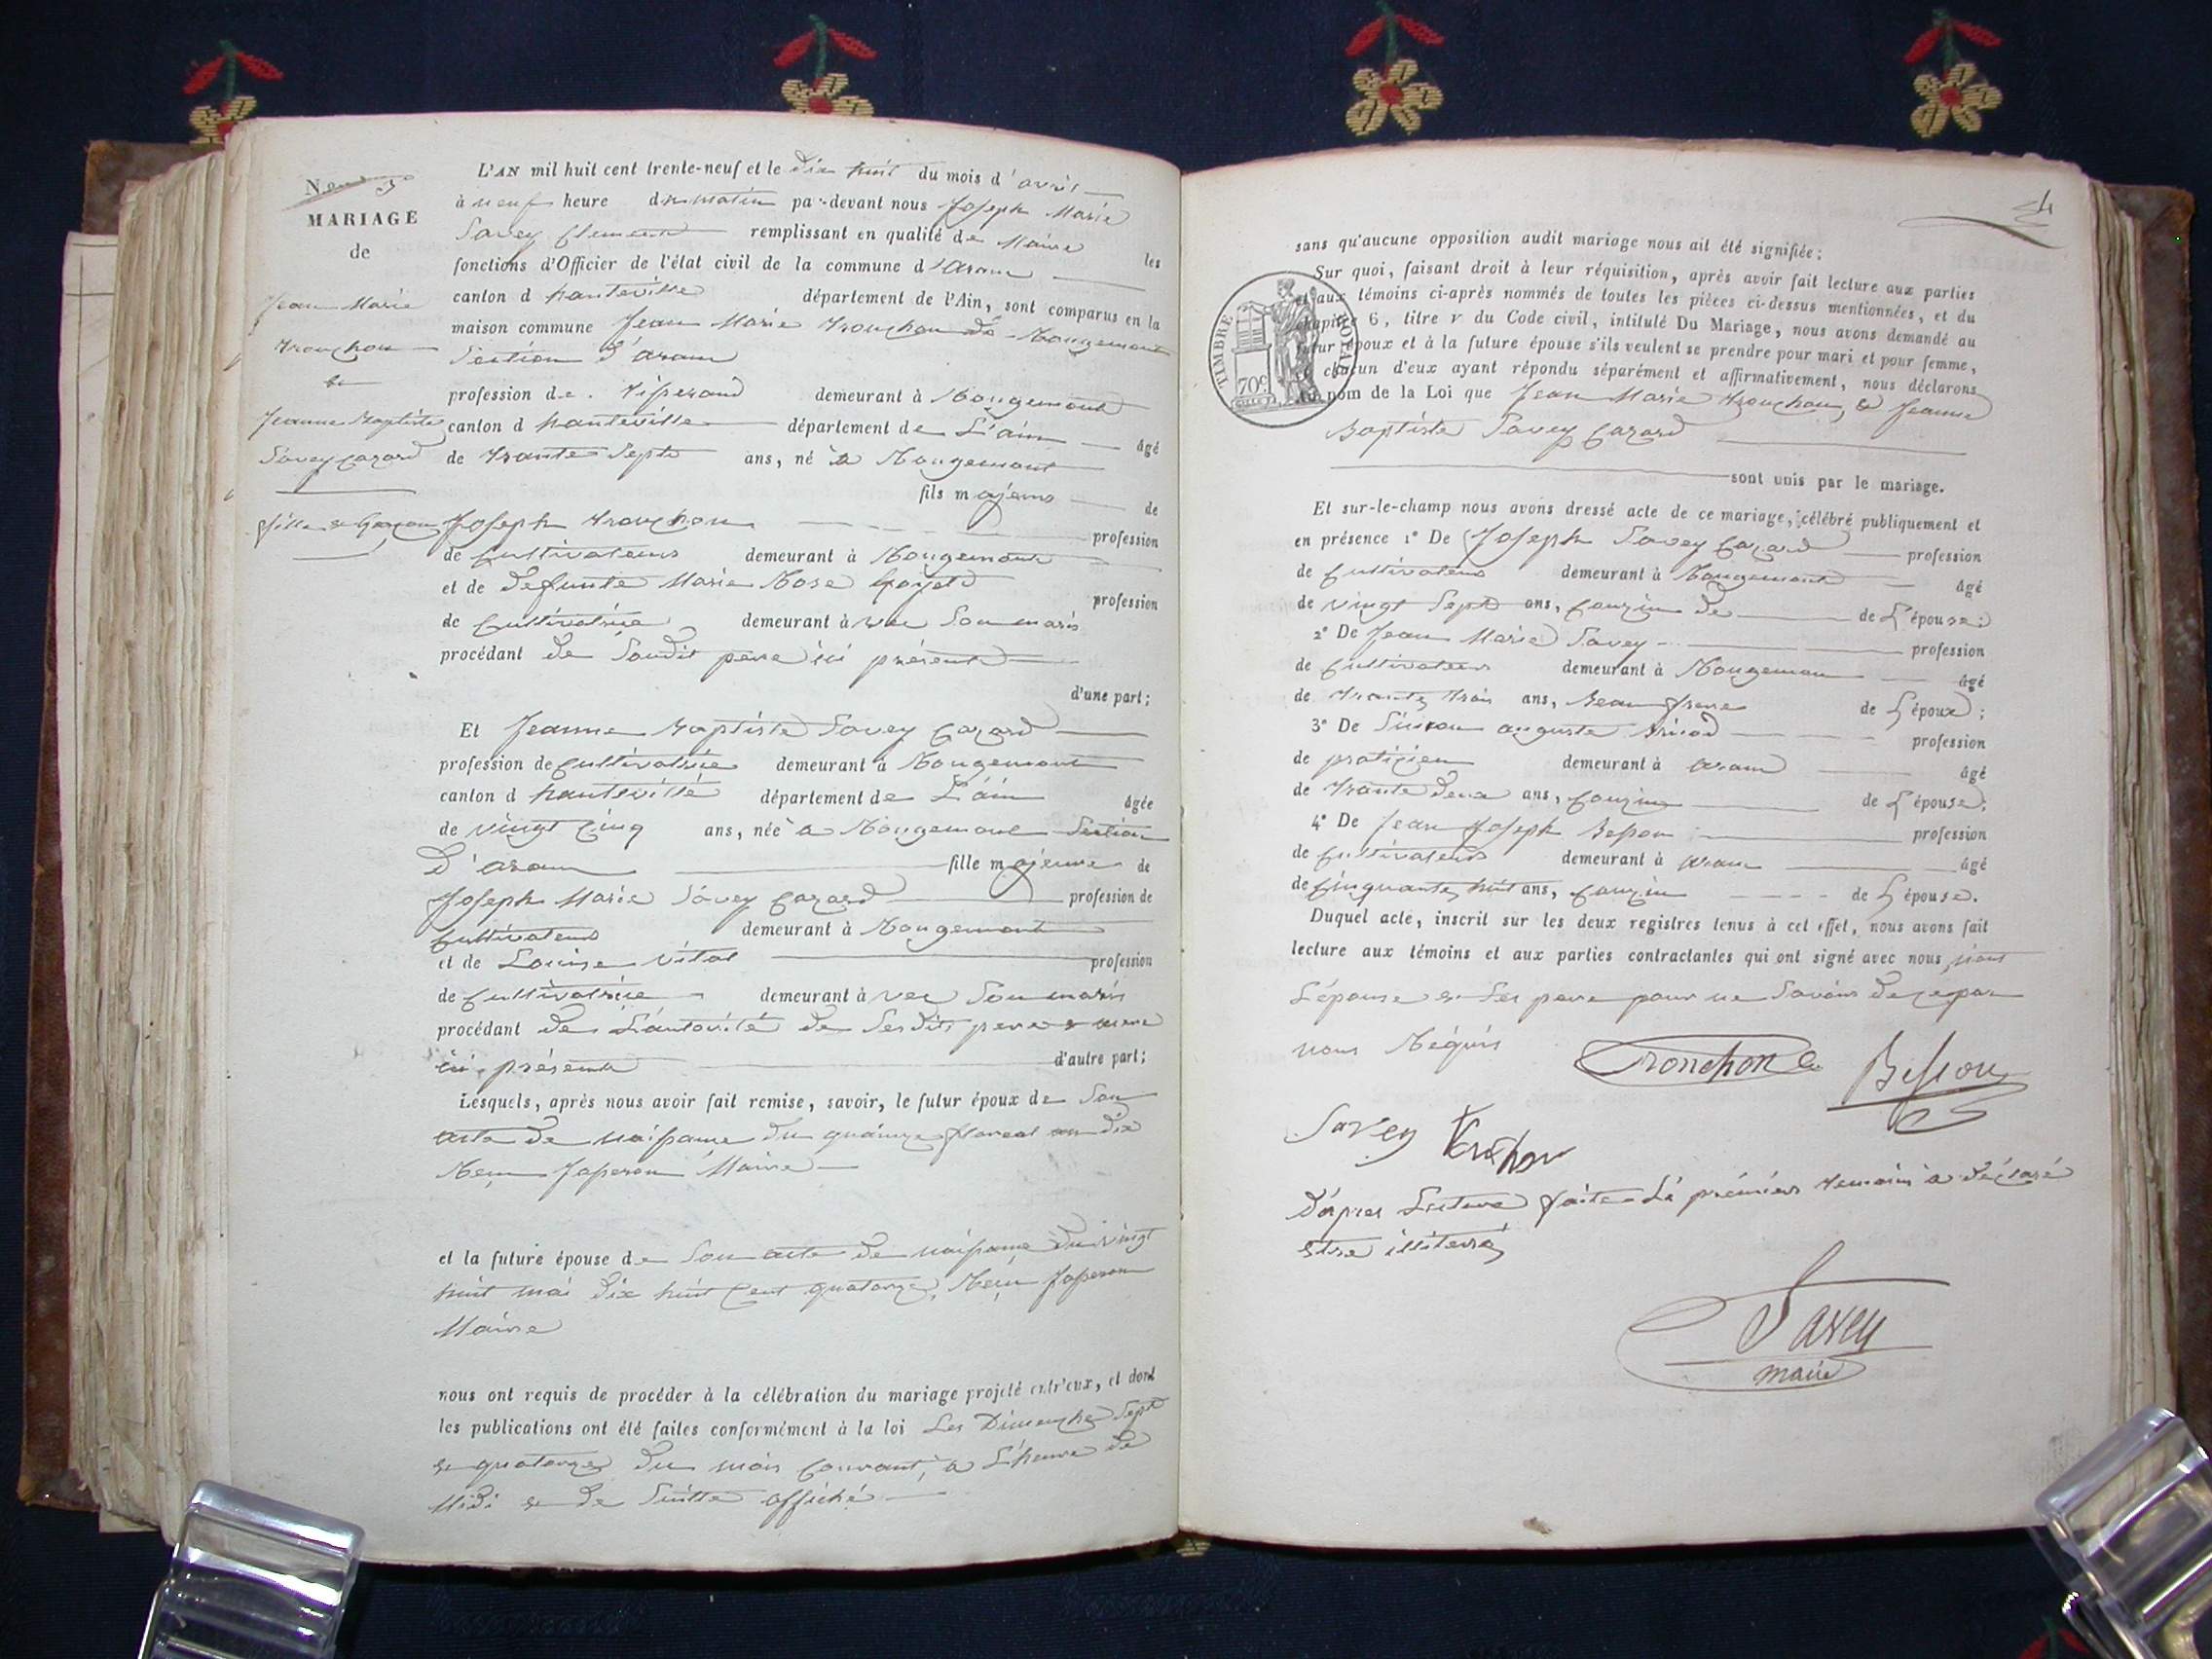 N 5
MARIAGE
de
Jean Marie
Tronchon
et
Jeanne Baptiste
Savey Cazard
fille & Garçon
L'AN mil huit cent trente-neuf et le dix huit du mois d'avril
à neuf heure du matin par-devant nous Joseph Marie
Savey Clement remplissant en qualité de Maire les
fonctions d'Officier de l'état civil de la commune d'aranc
canton d hauteville département de l'Ain, sont comparus en la
maison commune Jean Marie Tronchon de Rougemont
Section d'aranc
profession de Tisserand demeurant à Rougemont
canton d hauteville département de L'ain âgé
de trante Sept ans, né à Rougemont
fils majeur de
Joseph Tronchon profession
de Cultivateur demeurant à Rougemont
et de defunte Marie Rose Goyet profession
de Cultivatrice demeurant à vec Son maris
procédant de Soudit pere ici présent
d'une part;
Et Jeanne Baptiste Savey Cazard
profession de Cultivatrice demeurant à Rougemont
canton d hauteville département de L'ain âgée
de vingt Cinq ans, née à Rougemont Section
D'aranc fille majeure de
Joseph Marie Savey Cazard profession de
Cultivateur demeurant à Rougemont
et de Louise vital profession
de Cultivatrice demeurant à vec Son maris
procédant de L'autorité de Ses dits pere & mere
ici présents d'autre part;
Lesquels, après nous avoir fait remise, savoir, le futur époux de Son
acte de naissance du quinze floreal an dix
Maire
et la future épouse de Son acte de naissance du vingt
huit mai dix huit Cent quatorze,
Maire
nous ont requis de procéder à la célébration du mariage projeté entr'eux, et dont
les publications ont été faites conformément à la loi Les Dimenche Sept
& quatorze du mois Courant, à L'heure de
Midi & de Suitte affiché
4
sans qu'aucune opposition audit mariage nous ait été signifiée;
Sur quoi, faisant droit à leur réquisition, après avoir fait lecture aux parties
et aux témoins ci-après nommés de toutes les pièces ci-dessus mentionnées, et du
chapitre 6, titre V du Code civil, intitulé Du Mariage, nous avons demandé au
futur époux et à la future épouse s'ils veulent se prendre pour mari et pour femme,
et chacun d'eux ayant répondu séparément et affirmativement, nous déclarons
au nom de la Loi que Jean Marie Tronchon & Jeanne
Baptiste Savey Cazard
sont unis par le mariage.
TIMBRE ROYAL
70c
Et sur-le-champ nous avons dressé acte de ce mariage, célébré publiquement et
en présence 1° De Joseph Savey Cazard profession
de Cultivateur demeurant à Rougemont âgé
de vingt Sept ans, Couzin de de L'épouse;
2° De Jean Marie Savey profession
de Cultivateur demeurant à Rougemont âgé
de trante trois ans, Beau frere de L'époux;
3° De Simon auguste Brinod profession
de praticien demeurant à aranc âgé
de trante deux ans, Couzin de L'épouse;
4° De Jean Joseph Besson profession
de Cultivateur demeurant à aranc âgé
de Cinquante huit ans, Couzin de L'épouse.
Duquel acte, inscrit sur les deux registres tenus à cet effet, nous avons fait
lecture aux témoins et aux parties contractantes qui ont signé avec nous, non
L'épouse & Ses pere pour ne Savoir de ce par
nous Réquis
Tronchon Besson
Savey Tronchon
D'apres Lecture faite Le prémier temoin a déclaré
etre illiteré
Savey
maire